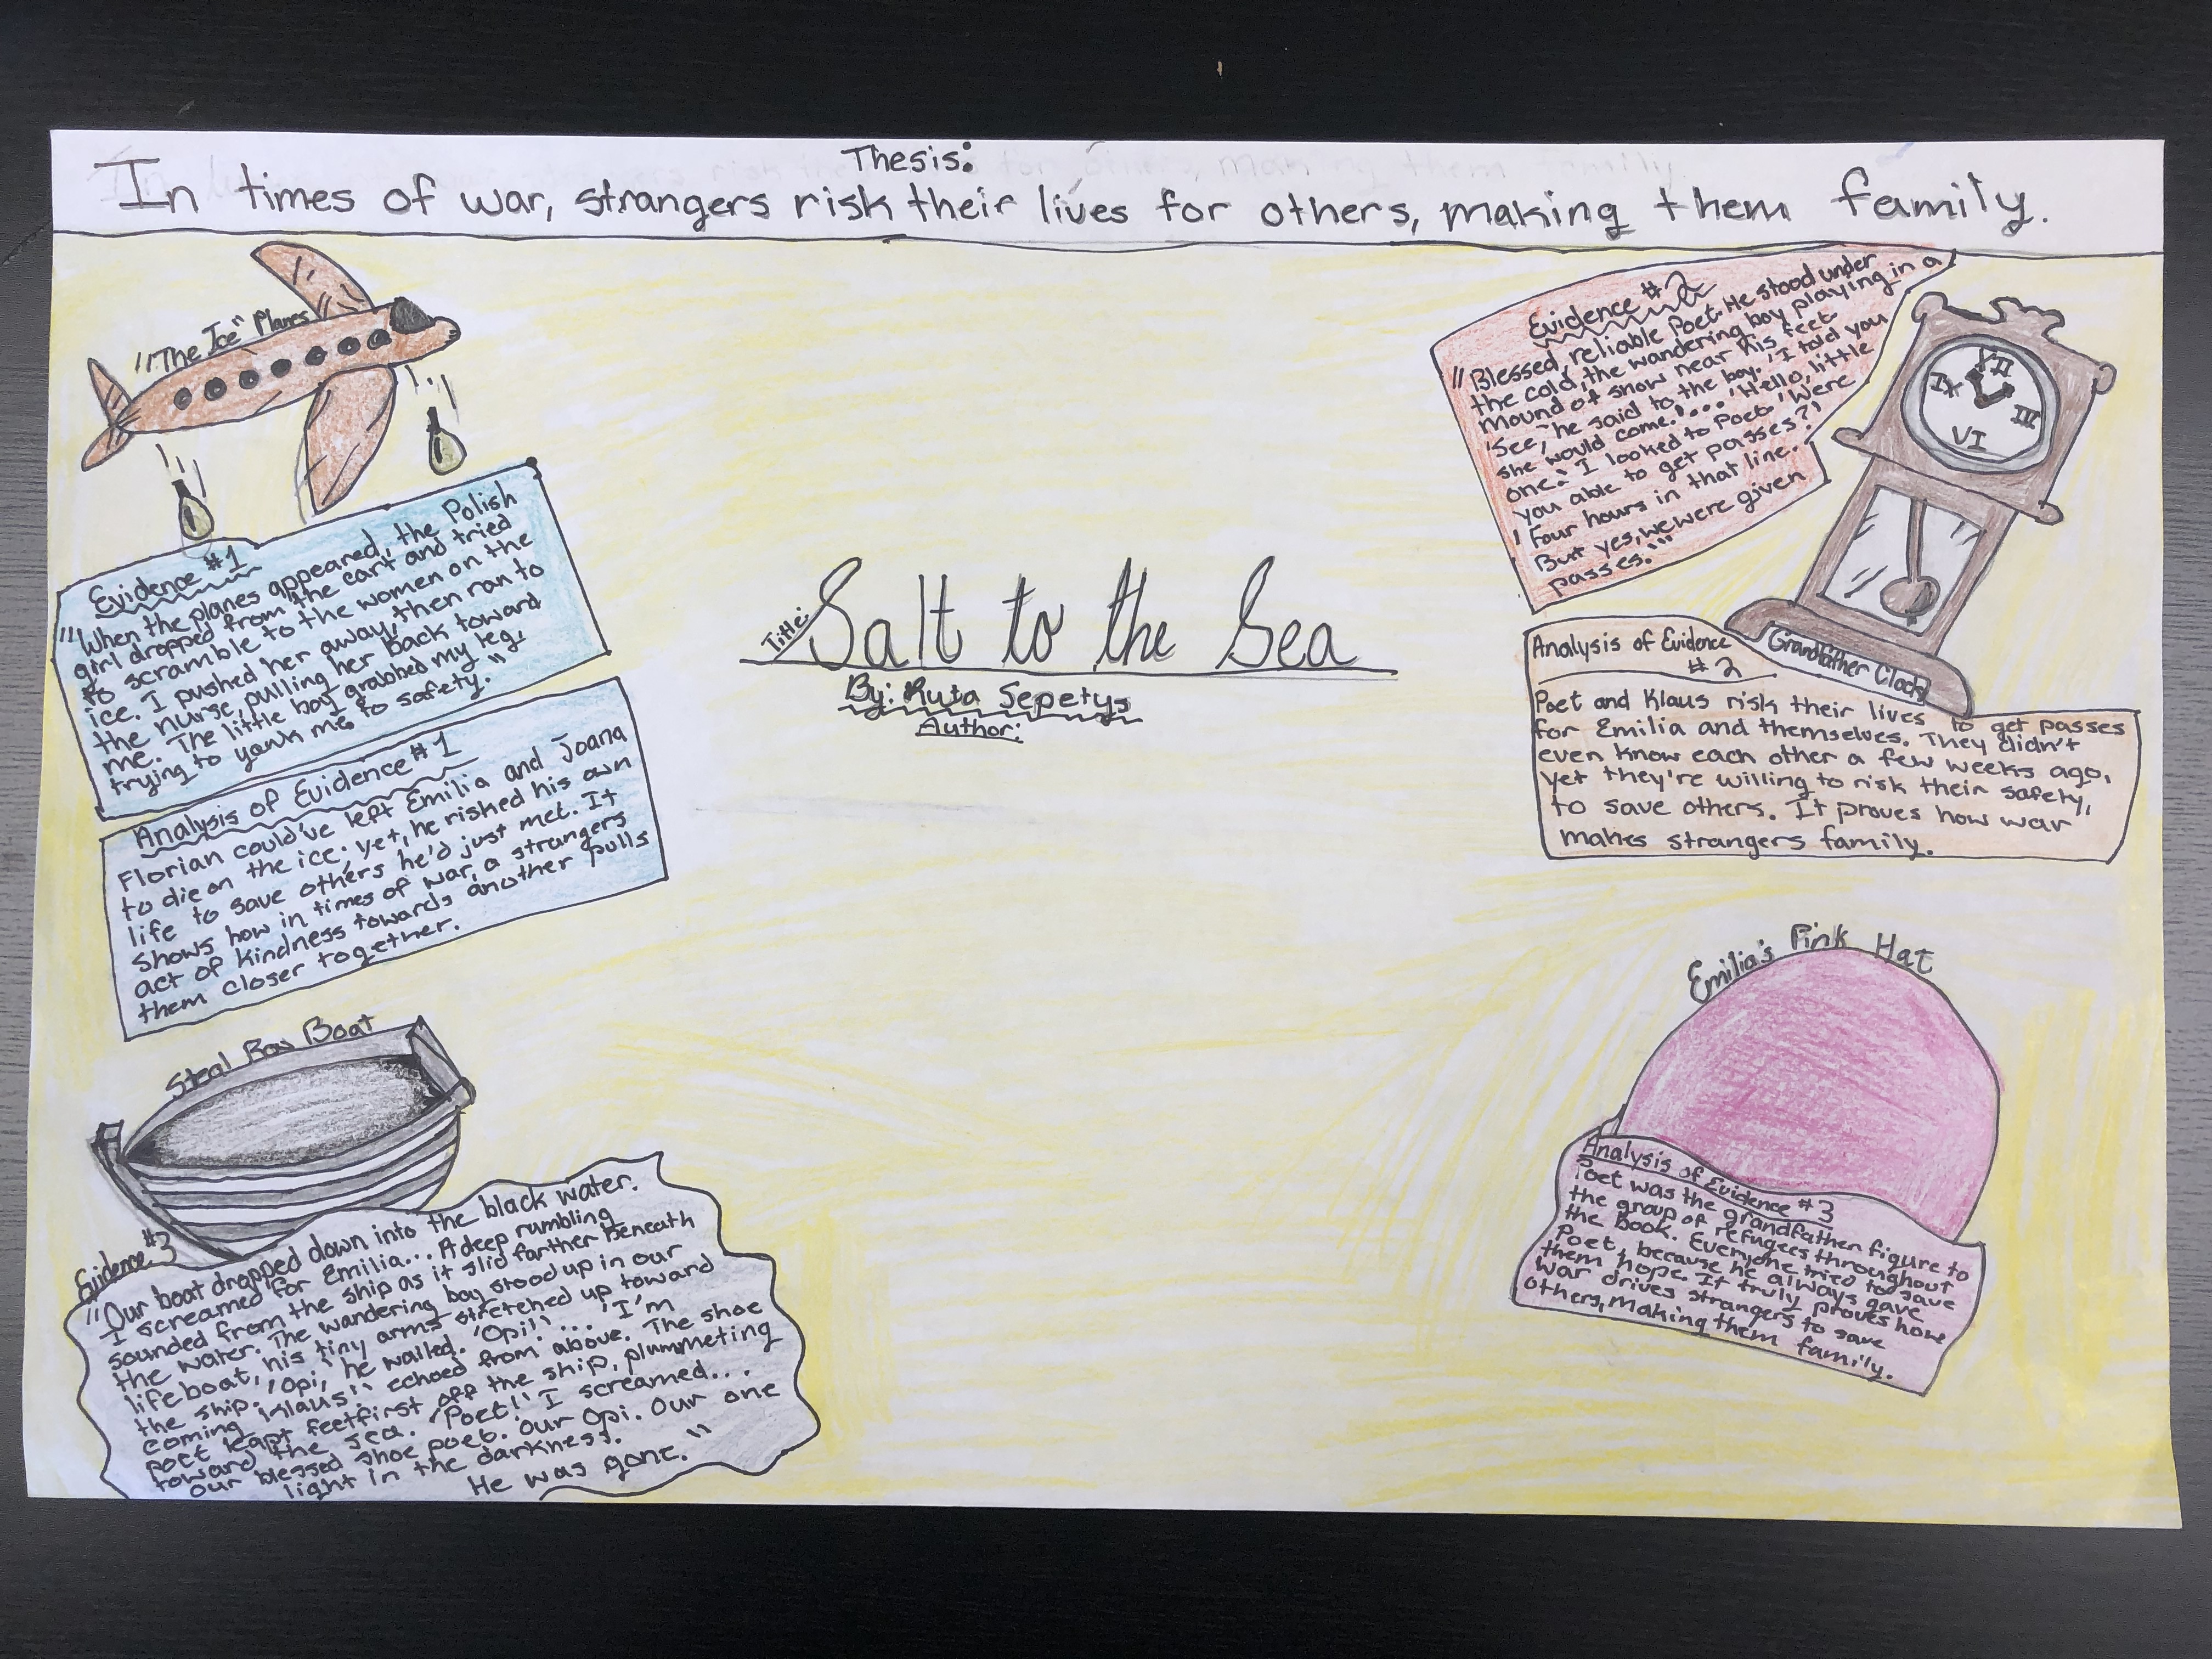 Thesis:
In times of war, strangers risk their lives for others, making them family.
"The Ice" Planes
Evidence #1
"When the planes appeared, the Polish
girl dropped from the cart and tried
to scramble to the women on the
ice. I pushed her away, then ran to
the nurse, pulling her back toward
me. The little boy grabbed my leg,
trying to yank me to safety."
Analysis of Evidence #1
Florian could've left Emilia and Joana
to die on the ice; yet, he risked his own
life to save others he'd just met. It
shows how in times of war, a strangers
act of kindness towards another pulls
them closer together.
Steal Row Boat
Evidence #3
"Our boat dropped down into the black water.
I screamed for Emilia... A deep rumbling
sounded from the ship as it slid farther beneath
the water. The wandering boy stood up in our
lifeboat, his tiny arms stretched up toward
the ship. 'Opi,' he wailed. 'Opi!'... 'I'm
coming Klaus!' echoed from above. The shoe
poet leapt feetfirst off the ship, plummeting
toward the sea. 'Poet!' I screamed...
our blessed shoe poet. Our Opi. Our one
light in the darkness.
He was gone."
Title:
Salt to the Sea
By: Ruta Sepetys
Author:
Evidence #2
"Blessed, reliable Poet. He stood under
the cold, the wandering boy playing in a
mound of snow near his feet.
'See,' he said to the boy. 'I told you
she would come.'... 'Hello, little
one.' I looked to Poet. 'Were
you able to get passes?'
'Four hours in that line.
But yes, we were given
passes.'"
Grandfather Clock
XII
III
VI
IX
Analysis of Evidence
#2
Poet and Klaus risk their lives to get passes
for Emilia and themselves. They didn't
even know each other a few weeks ago,
yet they're willing to risk their safety,
to save others. It proves how war
makes strangers family.
Emilia's Pink Hat
Analysis of Evidence #3
Poet was the grandfather figure to
the group of refugees throughout
the book. Everyone tried to save
Poet, because he always gave
them hope. It truly proves how
war drives strangers to save
others, making them family.